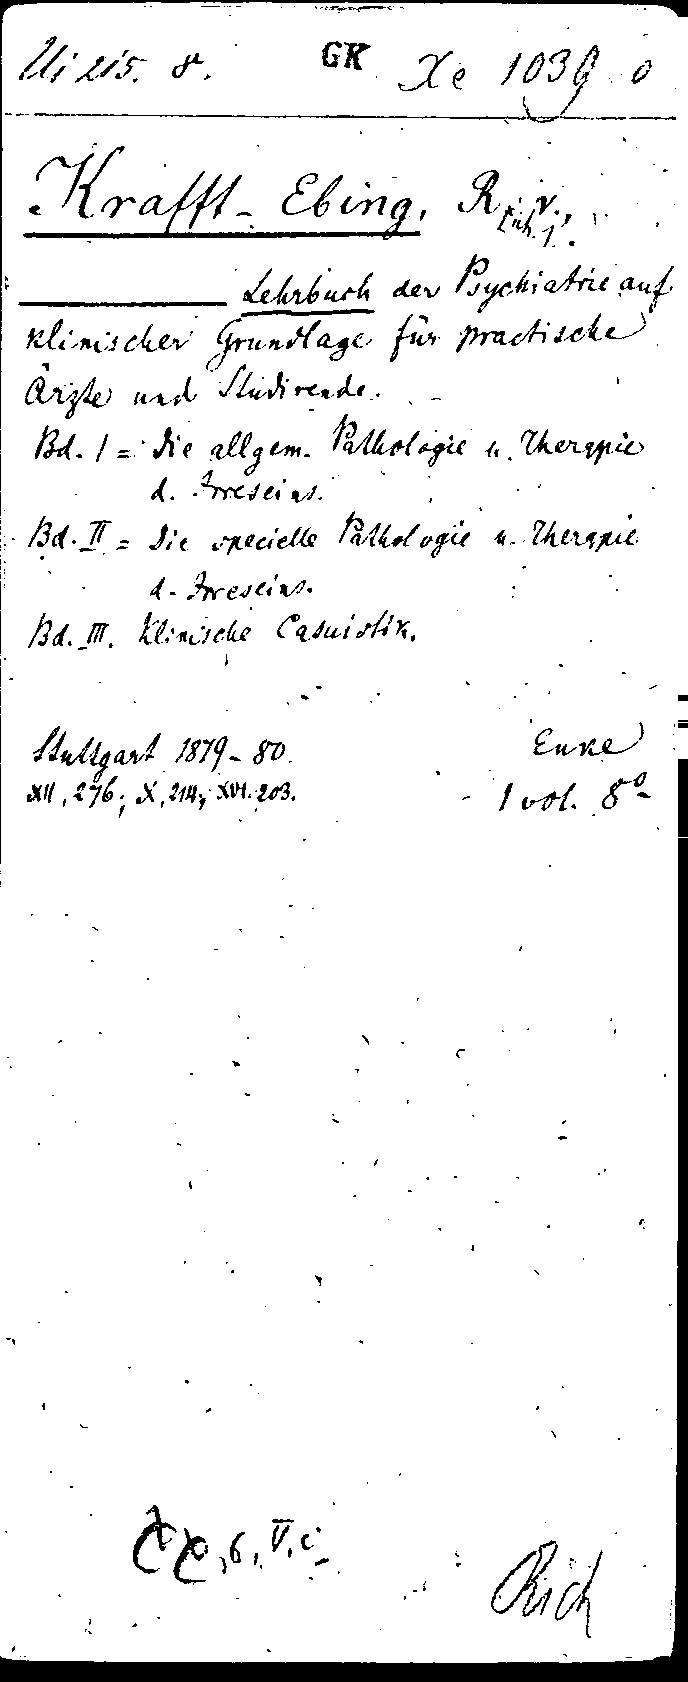 Ui 215. 8. GK Xe 1039 o
Krafft-Ebing, R. v.,
Enh. 1.
Lehrbuch der Psychiatrie auf
klinischer Grundlage für practische
Ärzte und Studirende.
Bd. I = Die allgem. Pathologie u. Therapie
d. Irreseins.
Bd. II = Die specielle Pathologie u. Therapie
d. Irreseins.
Bd. III. Klinische Casuistik.
Stuttgart 1879-80. Enke
XII, 276; X, 214; XVI. 203. 1 vol. 8°
, 6, V. c.
Rich